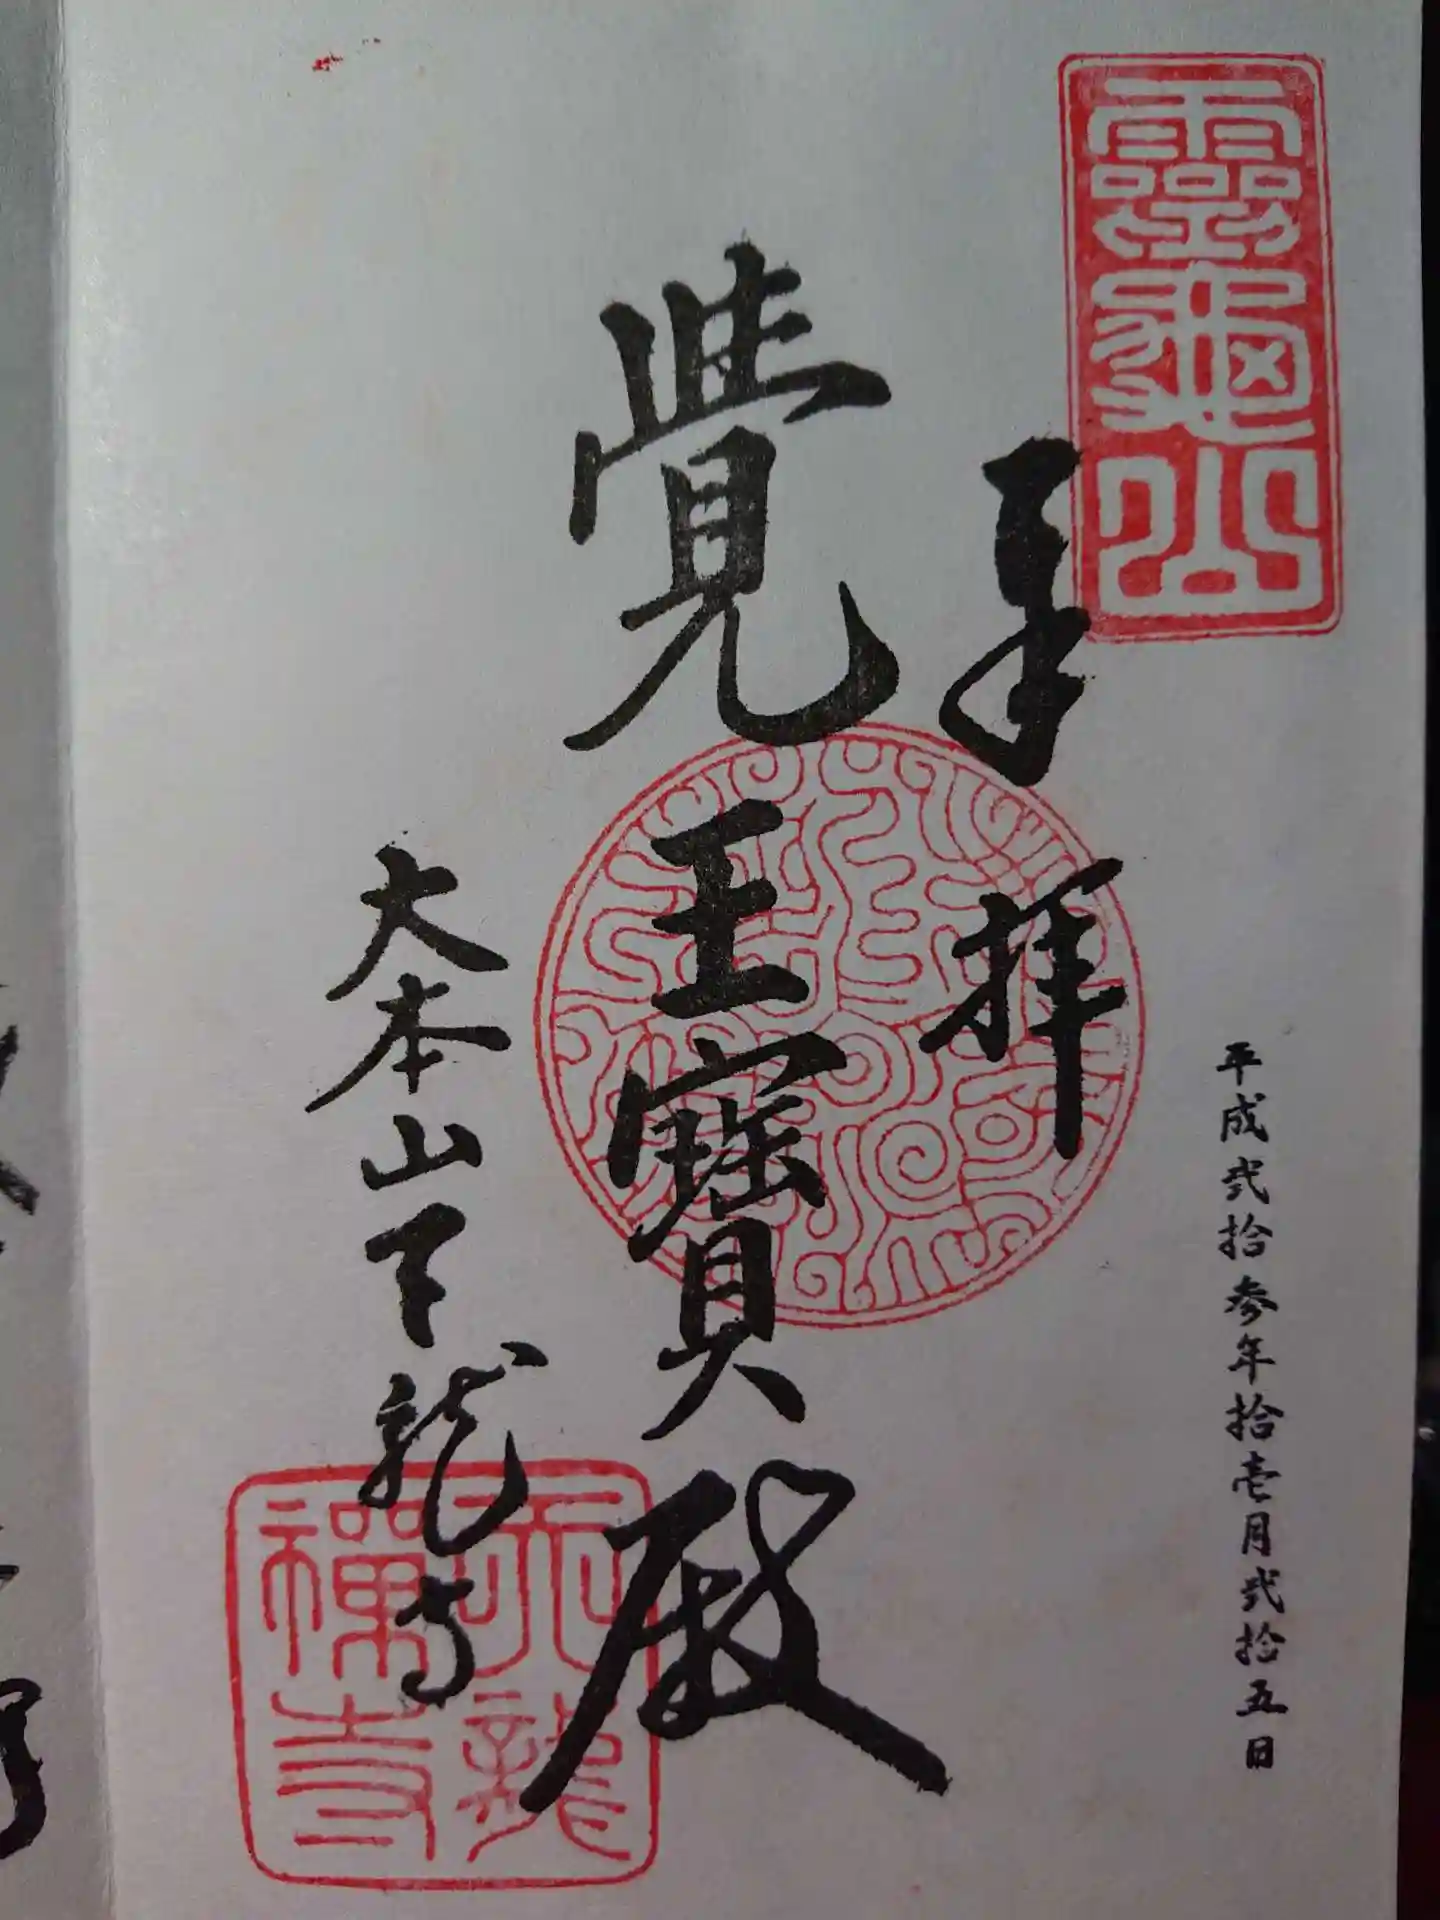 靈龜山
奉拝
平成弐拾参年拾壱月弐拾五日
覺王寶殿
大本山天龍寺
天龍
禅寺